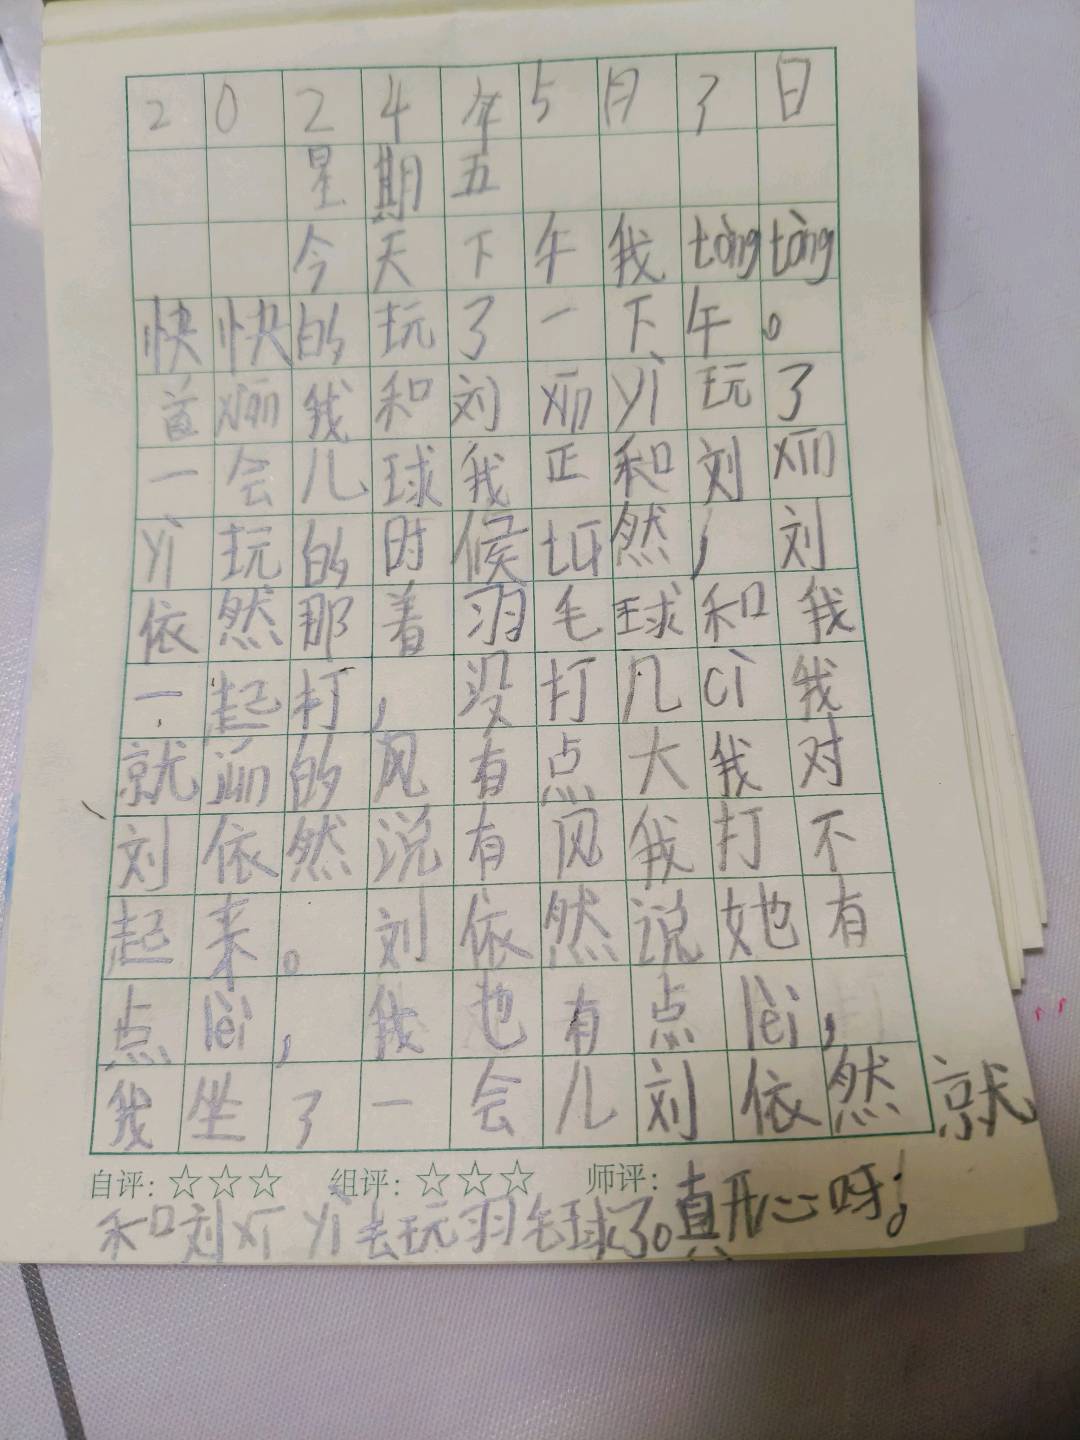 2024年5月3日
星期五
今天下午我tòngtòng
快快的玩了一下午。
首xiān我和刘xīnyì玩了
一会儿球我正和刘xīn
yì玩的时候tū然,刘
依然那着羽毛球和我
一起打,没打几cì我
就jiān的风有点大我对
刘依然说有风我打不
起来。刘依然说她有
点lèi,我也有点lèi,
我坐了一会儿刘依然就
自评:☆☆☆ 组评:☆☆☆ 师评:
和刘xīn yì去玩羽毛球了。真开心呀!